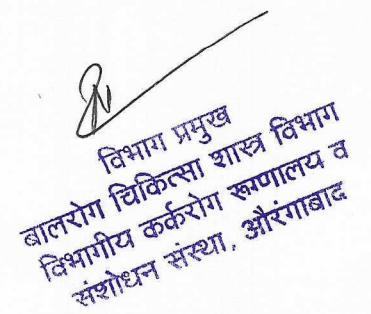 विभाग प्रमुख
बालरोग चिकित्सा शास्त्र विभाग
विभागीय कर्करोग रूग्णालय व
संशोधन संस्था, औरंगाबाद